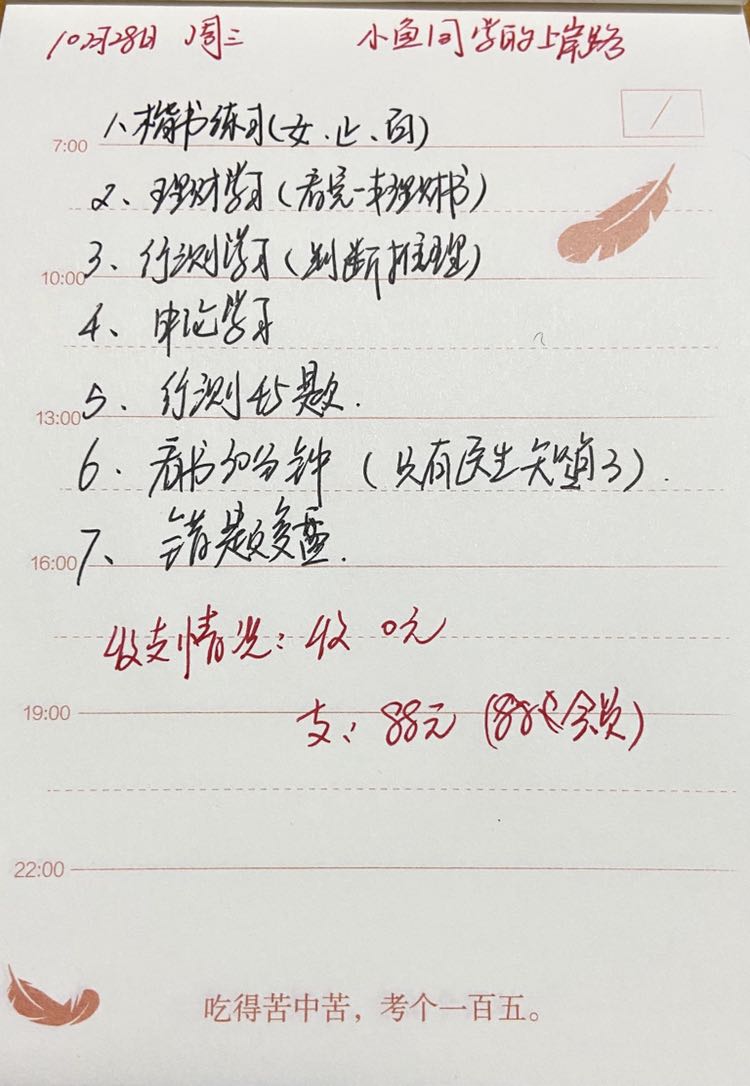 10月28日 周三 小鱼同学的上岸路
1、楷书练习(女、止、百)
7:00
2、理财学习(看完一本理财书)
3、行测学习(判断推理)
10:00
4、申论学习
5、行测45题.
13:00
6、看书30分钟(只有医生知道3).
7、错题复盘.
16:00
收支情况:收 0元
19:00
支:88元(88 会员)
22:00
吃得苦中苦，考个一百五。